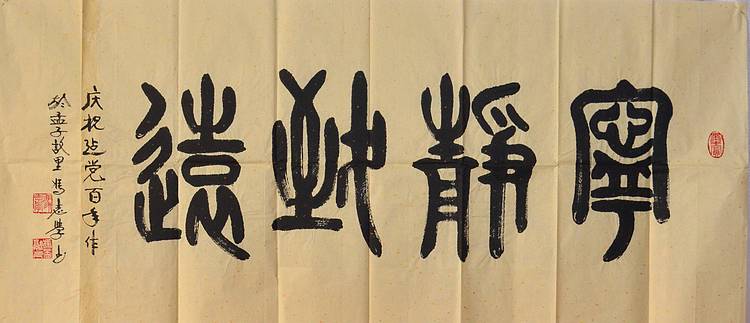 寧靜致遠
庆祝建党百年作
於孟子故里冯志学书